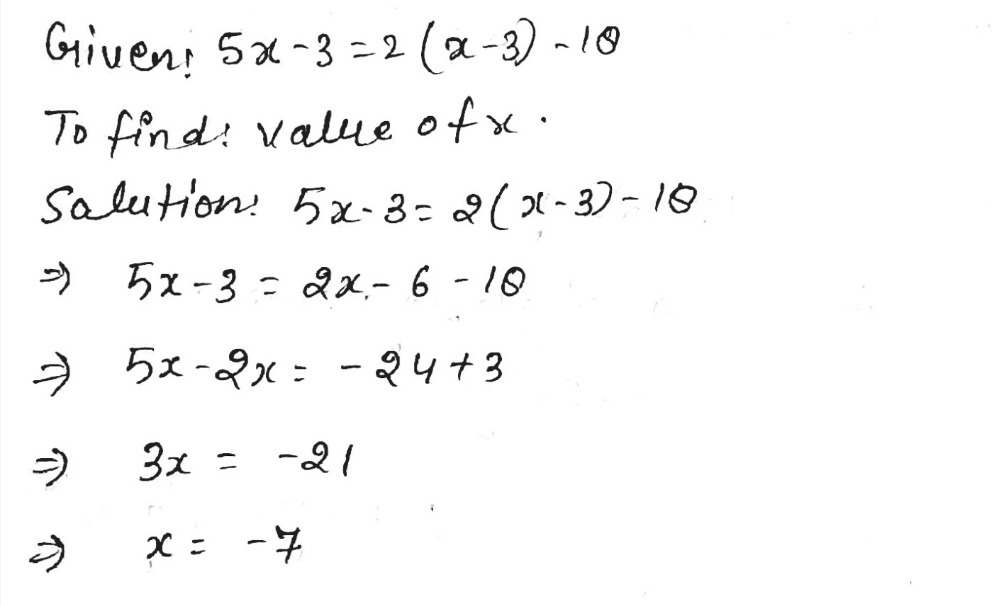 Given: 5x-3=2(x-3)-18
To find: value of x.
Solution: 5x-3=2(x-3)-18
⇒ 5x-3=2x-6-18
⇒ 5x-2x=-24+3
⇒ 3x=-21
⇒ x=-7